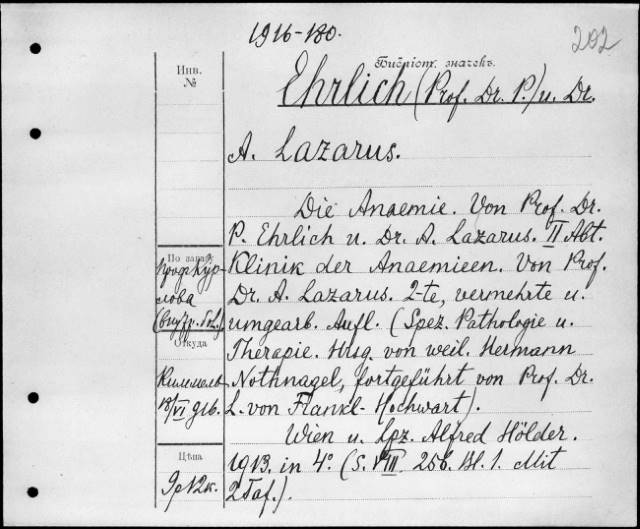 1916-180.
202
Инв.
№
Библіот. значекъ.
Ehrlich (Prof. Dr. P.) u. Dr.
A. Lazarus.
Die Anaemie. Von Prof. Dr.
P. Ehrlich u. Dr. A. Lazarus. II Abt.
Klinik der Anaemieen. Von Prof.
Dr. A. Lazarus. 2-te, vermehrte u.
umgearb. Aufl. (Spez. Pathologie u.
Therapie. Hrsg. von weil. Hermann
Nothnagel, fortgeführt von Prof. Dr.
L. von Frankl-Hochwart).
Wien u. Lpz. Alfred Hölder.
1913. in 4° (S. VIII. 256. Bl. 1. Mit
2 Taf.).
По запазу
проф. Кур-
лова
Откуда
Киммель
916.
Цѣна
9р 12к.